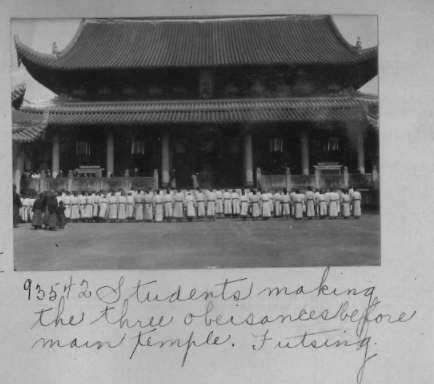 93542 Students making
the three obeisances before
main temple. Futsing.